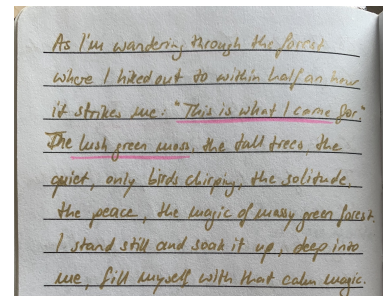 As I'm wandering through the forest
where I hiked out to within half an hour
it strikes me: "This is what I came for"
The lush green moss, the tall trees, the
quiet, only birds chirping, the solitude,
the peace, the magic of mossy green forest.
I stand still and soak it up, deep into
me, fill myself with that calm magic.